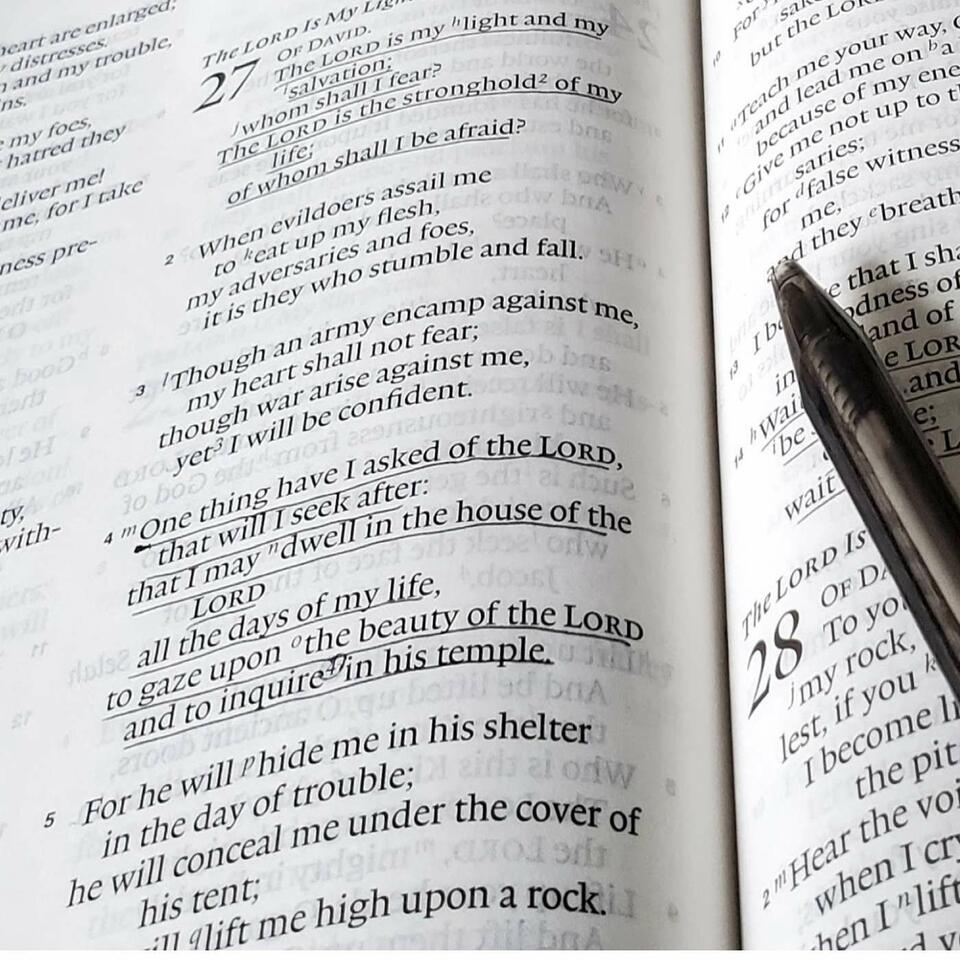 heart are enlarged;
distresses.
and my trouble,
my foes,
hatred they
me, for I take
The LORD Is My Light
27 OF DAVID.
The LORD is my hlight and my
isalvation;
jwhom shall I fear?
The LORD is the stronghold2 of my
life;
of whom shall I be afraid?
2 When evildoers assail me
to keat up my flesh,
my adversaries and foes,
it is they who stumble and fall.
3 lThough an army encamp against me,
my heart shall not fear;
though war arise against me,
yet3 I will be confident.
4 mOne thing have I asked of the LORD,
that will I seek after:
that I may ndwell in the house of the
LORD
all the days of my life,
to gaze upon othe beauty of the LORD
and to inquire4 in his temple.
5 For he will phide me in his shelter
in the day of trouble;
he will conceal me under the cover of
his tent;
qlift me high upon a rock.
10 For
but the LORD
11 Teach me your way,
and lead me on ba
because of my
12 cGive me not up to
for dfalse
me,
and they ebreath
13 I
that I
land of
in
14 hWait
be
wait
The LORD Is
28 OF
To
jmy rock,
lest, if you k
I become
the pit
2 mHear the
when I cry
I nlift